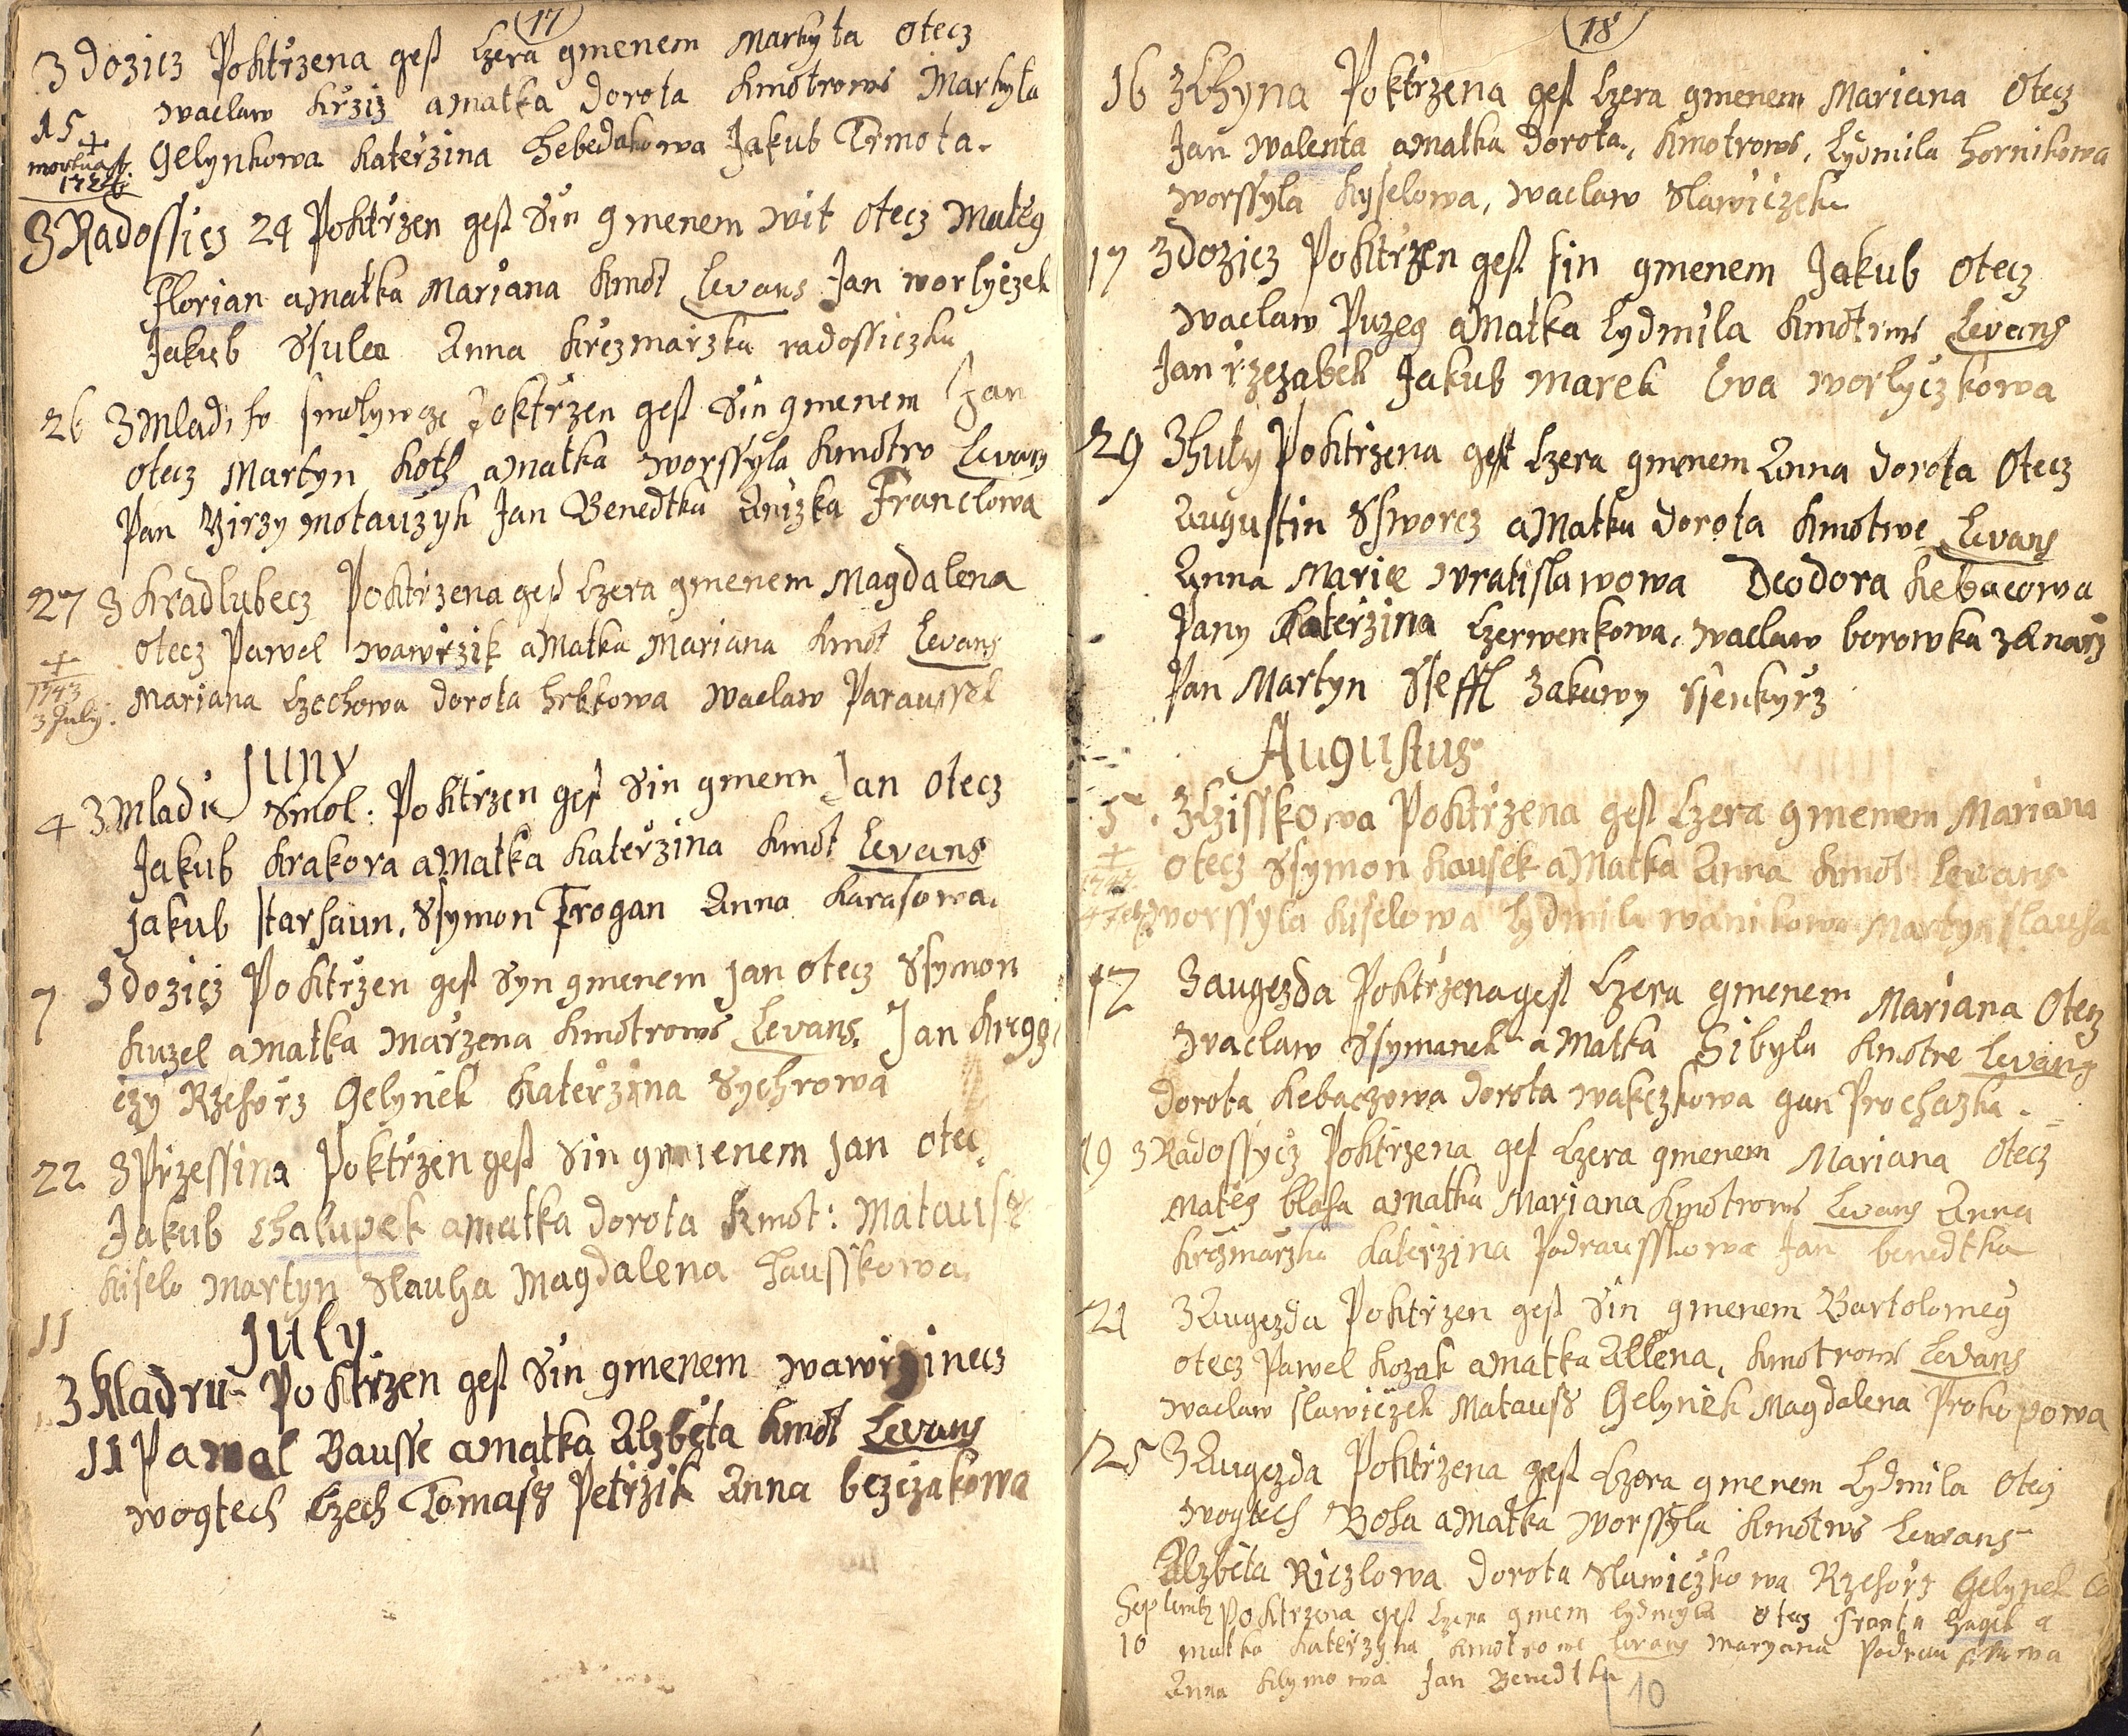 17
3dozicz Poktrzena gest Czera gmenem Markyta Otecz
15 waclaw krziz a matka dorota kmotrows Markyta
mortua est. Gelynkowa katerzina hebedakowa Jakub Trmota.
3 Radossicz 24 Poktrzen gest Sin gmenem wit Otecz Mateg
florian a matka Mariana kmot Levans Jan worlyczek
Jakub Ssulca Anna krczmarzka radossiczka
26 3 Mladiho smolywcze Poktrzen gest Sin gmenem Jan
Otecz Martyn kotz a matka worssyla kmotro Levans
Pan Girzy motauzyk Jan Benedtka Anizka Franclowa
27 3 kradlubecz Poktrzena gest Czera gmenem Magdalena
Otecz Pawel wawrzik a Matka Mariana kmot Levans
1743 3 July: Mariana Czechowa dorota hrbkowa waclaw Paraussek
Juny
4 3 Mladi Smol: Poktrzen gest Sin gmenn Jan Otecz
Jakub krakora a Matka katerzina kmot Levans
Jakub starhaun, Ssymon Trogan Anna karasowa.
7 3dozicz Poktrzen gest Syn gmenem Jan otecz Ssymon
kuzel a matka marzena kmotrows Levans. Jan kregg
czy Rzehorz Gelynek katerzina Sychrowa
22 3 Przessina Poktrzen gest Sin gmenem Jan otec
Jakub chalupek a matka dorota kmot: Matauss
kiselo Martyn Slauha Magdalena hausskowa.
11
July
3 kladru Poktrzen gest Sin gmenem wawrzinecz
11 Pawal Bausse a matka Alzbeta kmot Levans
wogtech Czech Tomass Petrzik Anna bezczakowa
18
16 3 Chyna Poktrzena gest Czera gmenem Mariana Otecz
Jan walenta a Matka dorota, kmotrows, Lydmila hornikowa
worssyla kyselowa, waclaw Slawiczek
17 3dozicz Poktrzen gest sin gmenem Jakub Otecz
waclaw Puzeg a Matka Lydmila kmotrws Levans
Jan rzezabek Jakub marek Eva worlyczkowa
29 3huty Poktrzena gest Czera gmenem Anna dorota Otecz
Augustin Ssworcz a Matka dorota kmotrve Levans
Anna Marie wratislawowa Deodora kebacowa
Pany katerzina Czerwenkowa, waclaw borowka
Pan Martyn Steffl zakuwy ssenkyrz
Augustus
5 3 Czisskowa Poktrzena gest Czera gmenem Mariana
otecz Ssymon kausek a Matka Anna kmot Levans
worssyla kiselowa Lydmila wanikowa Martyn slauha
17 3augezda Poktrzena gest Czera gmenem Mariana Otecz
waclaw Ssymanek a Matka Sibyla kmotre Levans
dorota kebaczowa dorota wakczkowa gan Prochazka.
19 3 Radossycz Poktrzena gest Czera gmenem Mariana Otecz
Mateg blaha a matka Mariana kmotrows Levans Anna
krczmarzka katerzina Podrausskowa Jan benedtka
21 3Augezda Poktrzen gest Sin gmenem Bartolomeg
otecz Pawel kozak a matka Allena, kmotrows Levans
waclaw slawiczek Matauss Gelynek Magdalena Prokopowa
25 3Augezda Poktrzena gest Czera gmenem Lydmila Otecz
wogtech Boha a matka worssyla kmotrws Lewans
Alzbeta Riczlowa dorota Slawiczkowa Rzehorz Gelynek
Septembr Poktrzena gest Czera gmem lydmyla otecz franta hagek a
10 matka katerzyna kmotrowe Levans maryana Podrausskowa
Anna klymowa Jan Benedtka
10